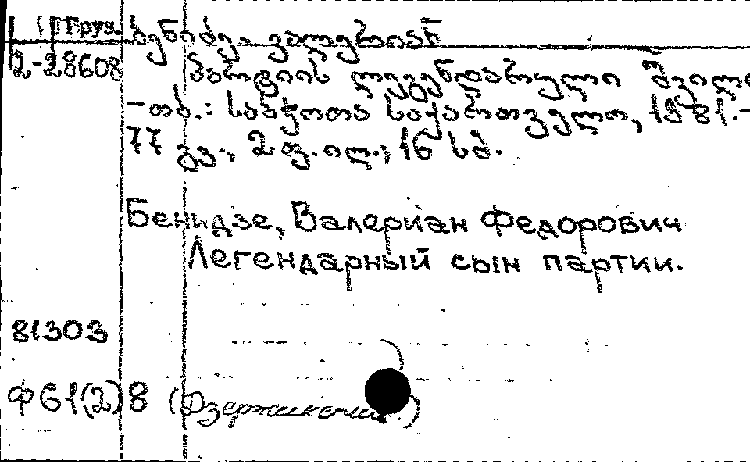 Груз. ბენიძე, ვალერიან
2-28608 პარტიის ლეგენდარული შვილი
-თბ.: საბჭოთა საქართველო, 1981.-
77 გვ., 2 ფ. ილ.; 16 სმ.
Бенидзе, Валериан Федорович
Легендарный сын партии.
81303
Ф61(2)8 (Дзержинский)